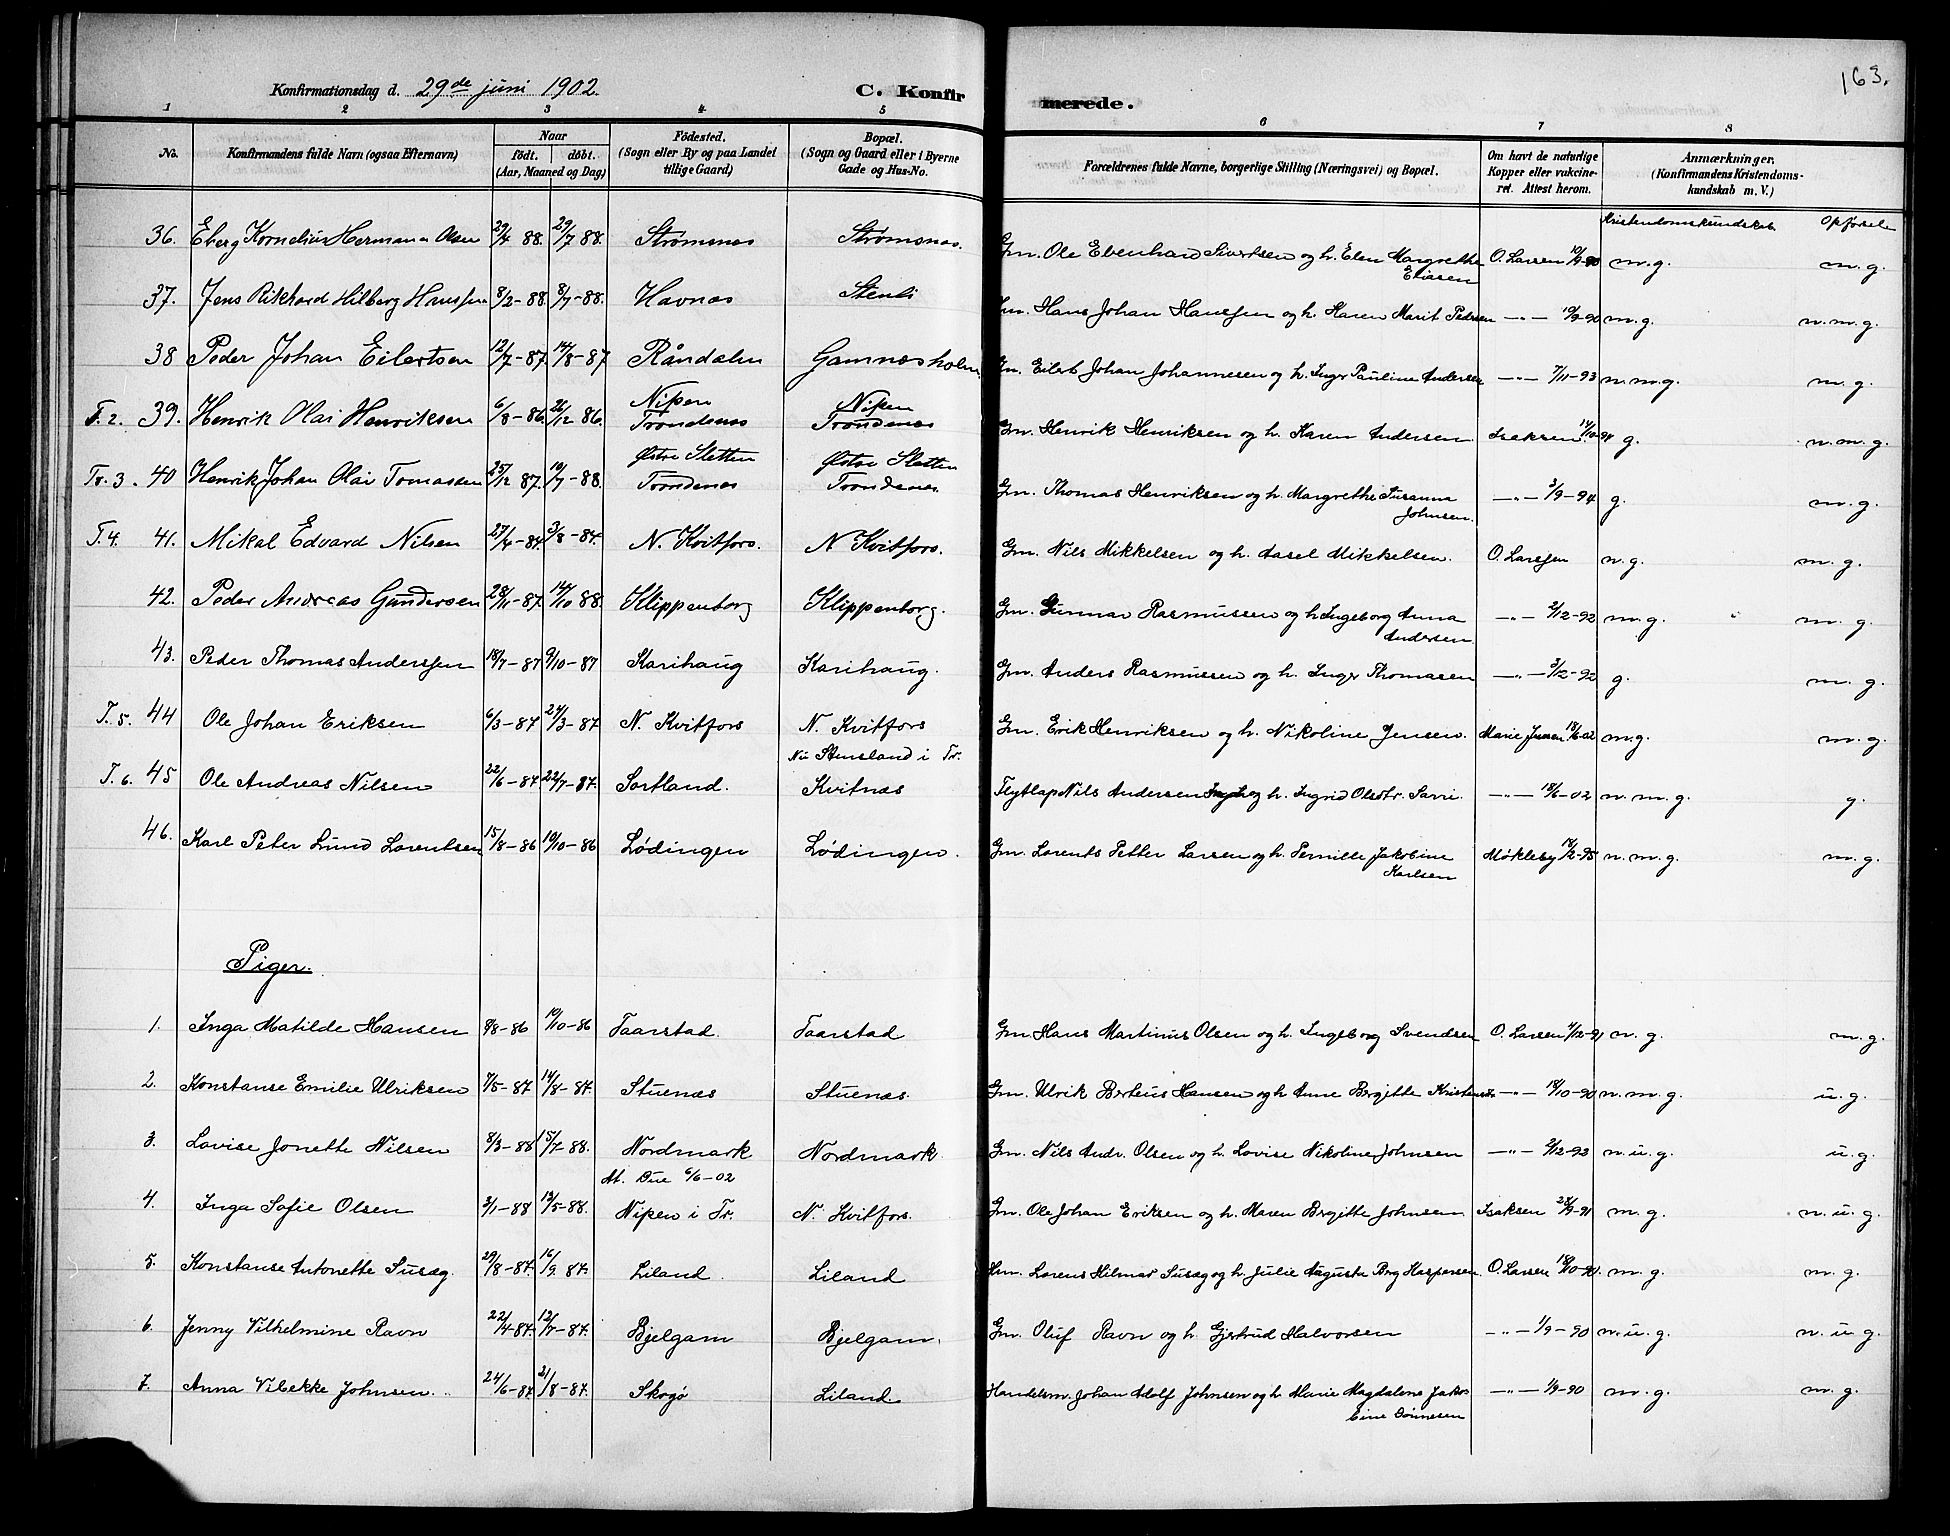 Konfirmationsdag d. 29de juni 1902. C. Konfirmerede. 163.
1 2 3 4 5 6 7 8
No. Konfirmandens fulde Navn (ogsaa Efternavn) Naar født. døbt. (Aar, Maaned og Dag) Fødested. (Sogn eller By og paa Landet tillige Gaard) Bopæl. (Sogn og Gaard eller i Byerne Gade og Hus-No. Forældrenes fulde Navne, borgerlige Stilling (Næringsvei) og Bopæl. Om havt de naturlige Kopper eller vakcineret. Attest herom. Anmærkninger. (Konfirmandens Kristendomskundskab m. V.)
Kristendomskundskab Opførsel
36. Eberg Kornelius Hermann Olsen 29/4 88. 29/7 88. Strømsnæs Strømsnæs. Gm. Ole Ebenhard Sivertsen og h. Elen Margrethe Eliasen O. Larsen 10/9-90 m.g. m.g.
37. Jens Rikhard Hilberg Hanssen 8/2-88 8/7-88. Havnæs Stenli Gm. Hans Johan Hanssen og h. Karen Marit Pedersen —"— 10/9-90 m.g. n.m.g.
38 Peder Johan Eilertsen 12/7-87. 14/8-87 Råndalen Gamnæsholm Gm. Eilert Johan Johannesen og h. Inger Pauline Andersen —"— 7/11-93 n.m.g. m.g.
T. 2. 39. Henrik Olai Henriksen 6/8-86. 26/12 86. Nipen Trondenæs Nipen Trondenæs Gm. Henrik Henriksen og h. Karen Andersen Isaksen 14/10-94 g. n.m.g.
Tr. 3. 40 Henrik Johan Olai Tomassen 25/12 87. 19/7-88. Østre Sletten Trondenæs Østre Sletten Trondenæs. Gm. Thomas Henriksen og h. Margrethe Susanna Johnsen. —"— 3/9-94 g. m.g.
T. 4. 41. Mikal Edvard Nilsen 27/4-84. 3/8-84. N. Kvitfors. N Kvitfors. Gm. Nils Mikkelsen og h. Aasel Mikkelsen. O. Larssen n.g. m.g.
42. Peder Andreas Gundersen 28/11-87. 14/10 88. Klippenborg Klippenborg. Gm. Gunnar Rasmussen og h. Ingeborg Anna Andersen —"— 2/12-92 m.g. m.g.
43. Peder Thomas Anderssen 18/7-87 9/10-87 Karihaug Karihaug. Gm. Anders Rasmussen og h. Inger Thomasen —"— 3/12-92 g. m.g.
T. 5. 44 Ole Johan Eriksen 6/3-87 27/3-87. N. Kvitfors N. Kvitfors Gm. Erik Henriksen og h. Nikoline Jensen. Marie Jensen 18/6-02 m.g. m.g.
Nu Stensland i Tr.
T. 6. 45 Ole Andreas Nilsen 22/6-87. 22/7-87. Sortland. Kvitnæs Flytlap Nils Andersen og h. Ingrid Olsdtr. Sarri. —"— 18/6-02 n.m.g. g.
46. Karl Peter Lund Lorentsen 15/8-86 10/10-86 Lødingen Lødingen. Gm. Lorents Petter Larsen og h. Pernille Jakobine Karlsen Møkleby 14/2-95 n.m.g. m.g.
Piger.
1. Inga Matilde Hansen 9/8-86 10/10-86 Taarstad. Taarstad Gm. Hans Martinus Olsen og h. Ingeborg Svendsen O. Larsen 4/12-91 n.g. m.g.
2. Konstanse Emilie Ulriksen 7/5-87. 14/8-87. Stuenæs Stuenæs. Gm. Ulrik Berteus Hansen og h. Anne Bergitte Kristensdr. —"— 18/10-90 n.m.g. u.g.
3. Lovise Jonette Nilsen 8/3-88 15/7-88. Nordmark Nordmark. Gm. Nils Andr. Olsen og h. Lovise Nikoline Johnsen —"— 2/12-92 n.u.g. u.g.
At. Due 6/6-02
4. Inga Sofie Olsen 3/1-88 13/5-88. Nipen i Tr. N. Kvitfors. Gm. Ole Johan Eriksen og h. Maren Bergitte Johnsen Isaksen 28/9-91 m.g. n.u.g.
5. Konstanse Antonette Susæg. 29/8-87. 16/9. 87. Liland. Liland Hm. Lorens Hilmar Susæg og h. Julie Augusta Brg Kaspersen O. Larsen 18/10-91. m.g. m.g.
6. Jenny Vilhelmine Ravn 22/4-87. 12/7-87. Bjelgam Bjelgam. Gm. Oluf Ravn og h. Gjertrud Halvorsen —"— 1/9-90 n.u.g. n.u.g.
7. Anna Vibekke Johnsen. 24/6-87. 21/8-87. Skogø Liland. Handelsm. Johan Adolf Johnsen og h. Marie Magdalena Jakobine Dønnesen —"— 1/9-90 m.g. m.g.